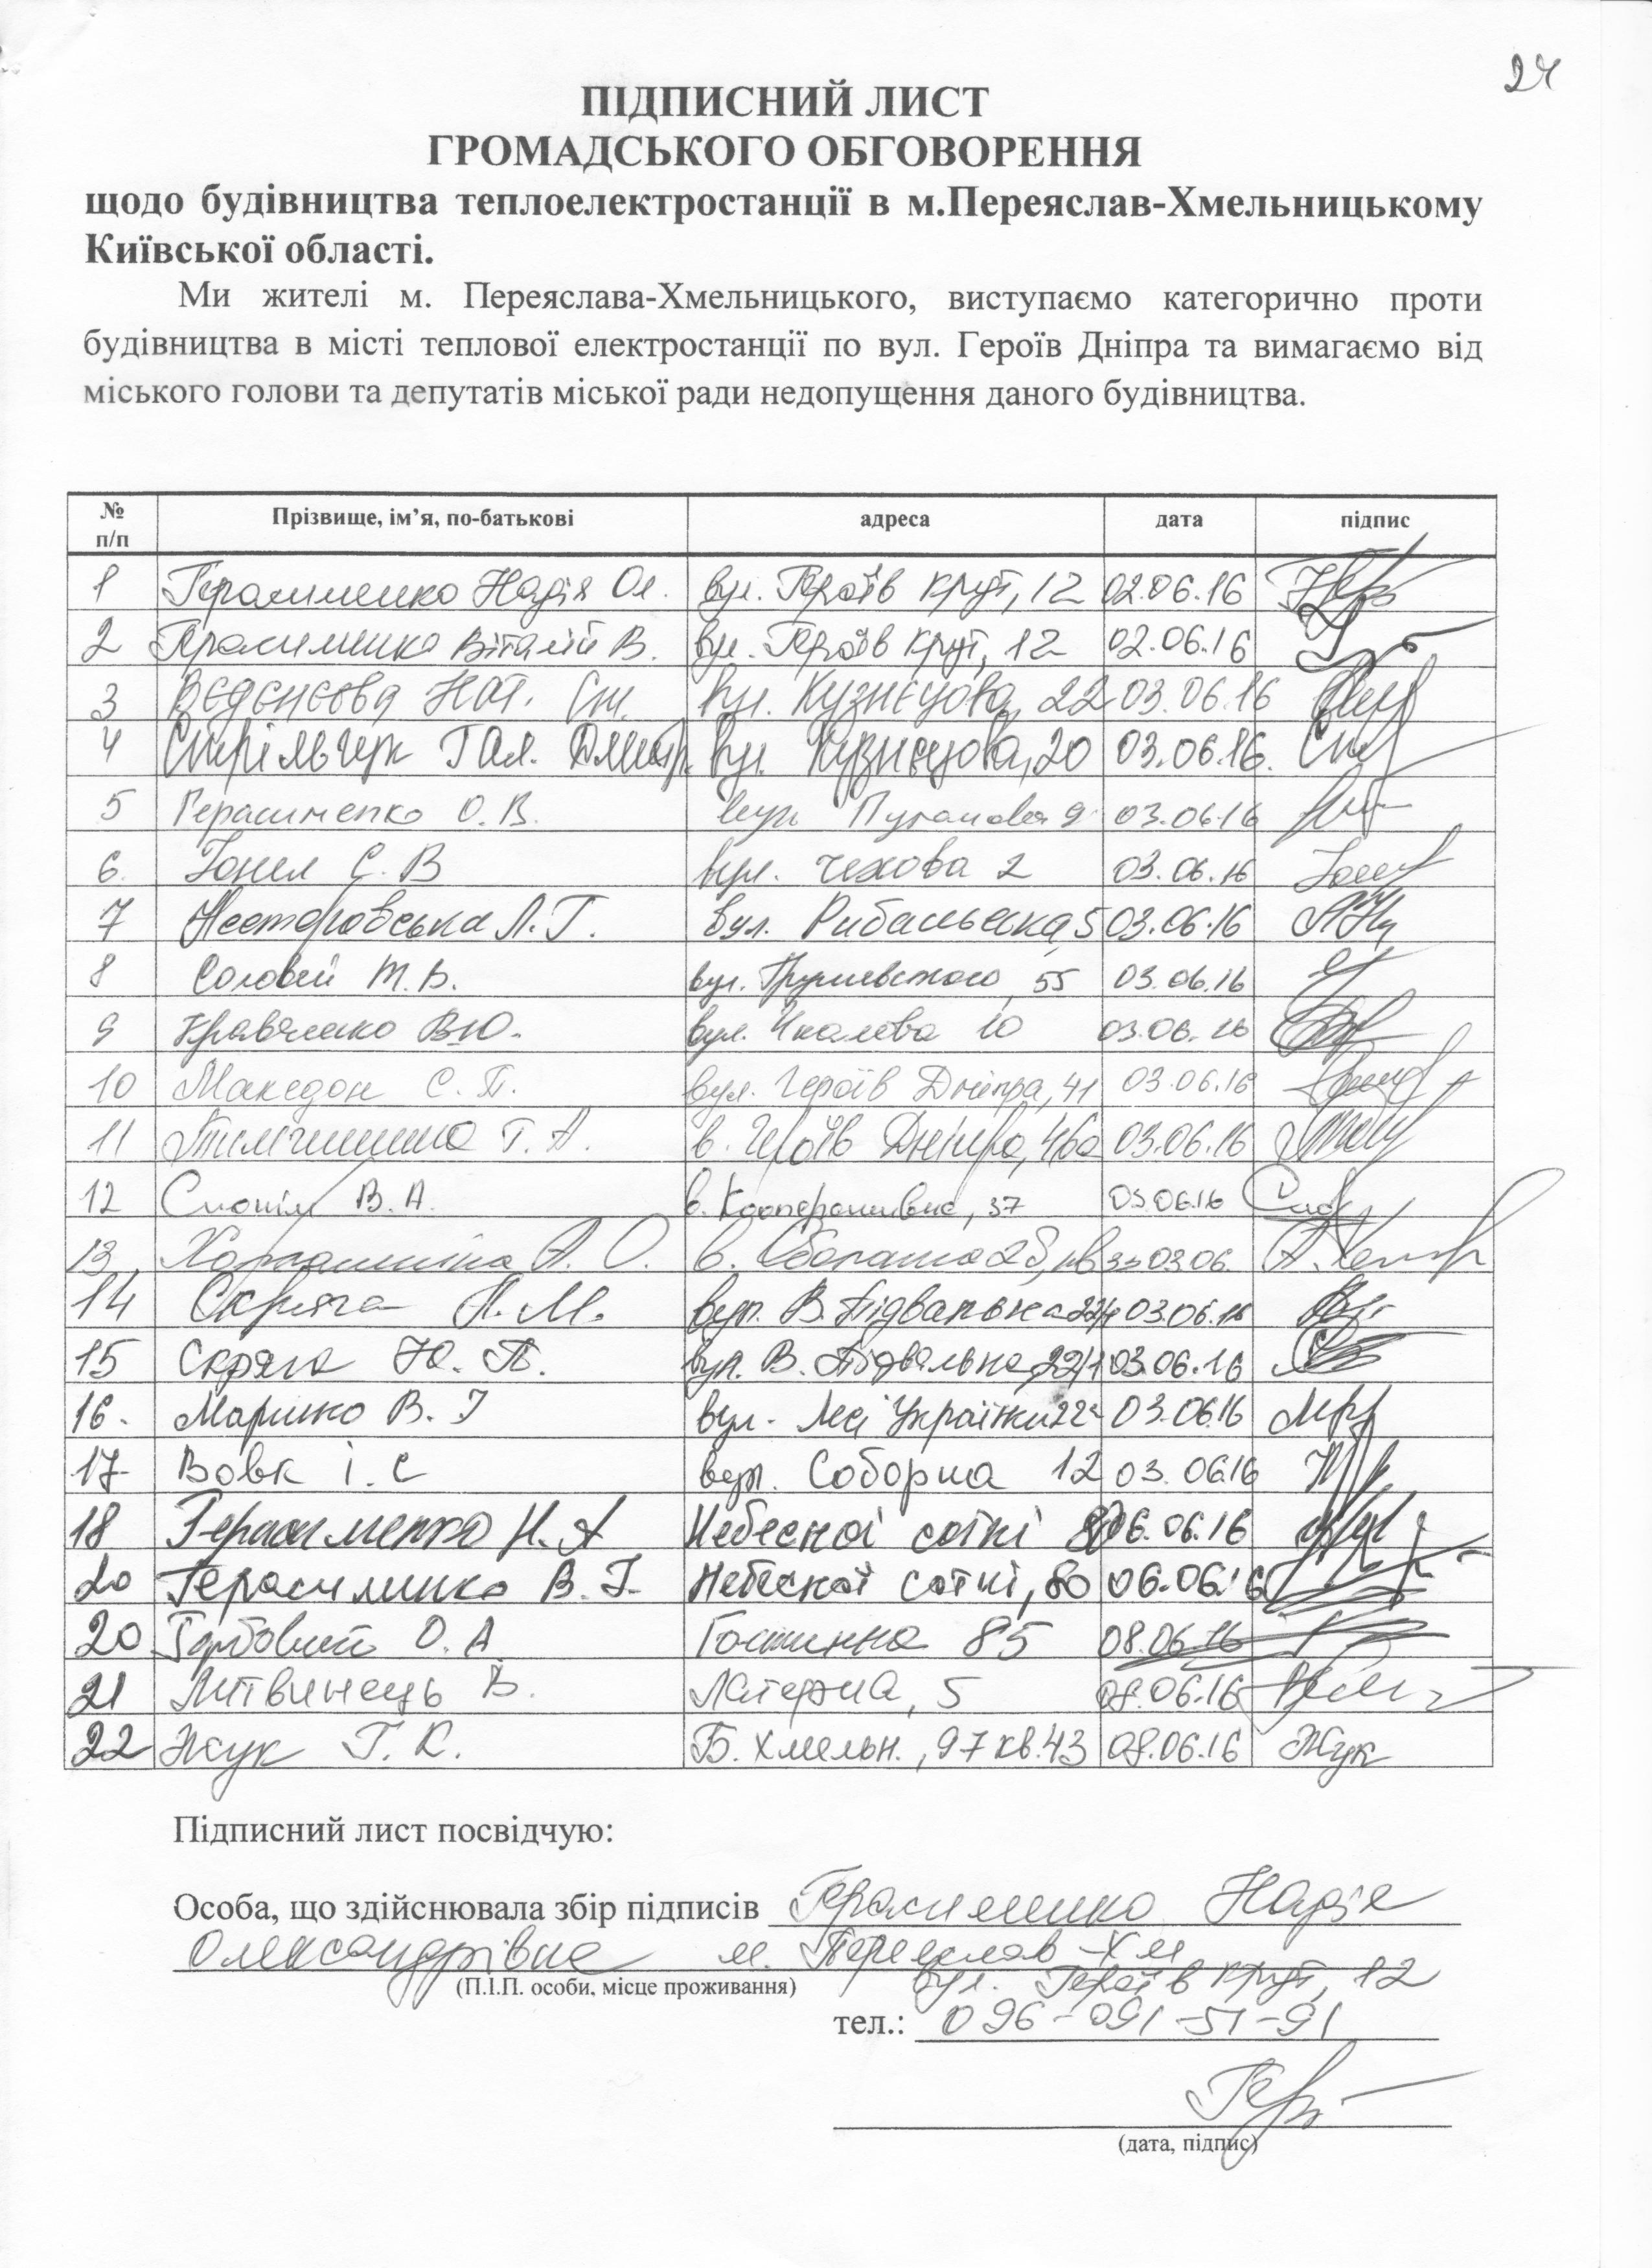 24
ПІДПИСНИЙ ЛИСТ
ГРОМАДСЬКОГО ОБГОВОРЕННЯ
щодо будівництва теплоелектростанції в м.Переяслав-Хмельницькому
Київської області.
Ми жителі м. Переяслава-Хмельницького, виступаємо категорично проти
будівництва в місті теплової електростанції по вул. Героїв Дніпра та вимагаємо від
міського голови та депутатів міської ради недопущення даного будівництва.
№ п/п Прізвище, ім’я, по-батькові адреса дата підпис
1 Герасименко Надія Ол. вул. Героїв Крут, 12 02.06.16
2 Герасименко Віталій В. вул. Героїв Крут, 12 02.06.16
3 Вєдєнєєва Нат. вул. Кузнєцова, 22 03.06.16
4 Стрільчук Гал. Дмитр. вул. Кузнєцова, 20 03.06.16.
5 Герасименко О.В. вул 9 03.06.16
6. С.В вул. Чехова 2 03.06.16
7 Несторовська Л.Г. вул. Рибальська, 5 03.06.16
8 Соловей Т.В. вул. Грушевського, 55 03.06.16
9 Кравченко В.Ю. вул. Чкалова 10 03.06.16
10 Македон С.П. вул. Героїв Дніпра, 41 03.06.16
11 Г.А. в. Героїв Дніпра, 46а 03.06.16
12 В.А. в. Кооперативна, 37 03.06.16
13 А.О. в. 03.06.
14 Скряга Н.М. вул. В.Підвальна 22/1 03.06.16
15 Скряга Ю.П. вул. В.Підвальна, 22/1 03.06.16
16. Марино В.І вул. Лесі Українки 03.06.16
17 Вовк І.С вул. Соборна 12 03.06.16
18 Герасименко Н.А Небесної сотні 80 06.06.16
20 Герасименко В.І. Небесної сотні, 80 06.06.16
20 Горбовий О.А Гостинна 85 08.06.16
21 Литвинець В. 5 08.06.16
22 Жук Г.К. Б.Хмельн., 97 кв.43 08.06.16 Жук
Підписний лист посвідчую:
Особа, що здійснювала збір підписів Герасименко Надія
Олександрівна м. Переяслав-Хм
(П.І.П. особи, місце проживання) вул. Героїв Крут, 12
тел.: 096-091-51-91
(дата, підпис)